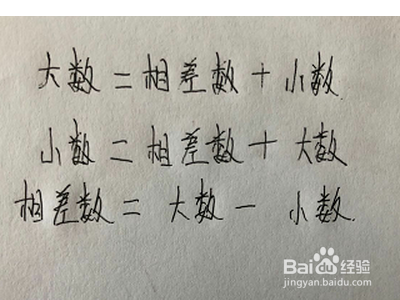 大数=相差数+小数
小数=相差数+大数
相差数=大数-小数.
Baidu经验
jingyan.baidu.com